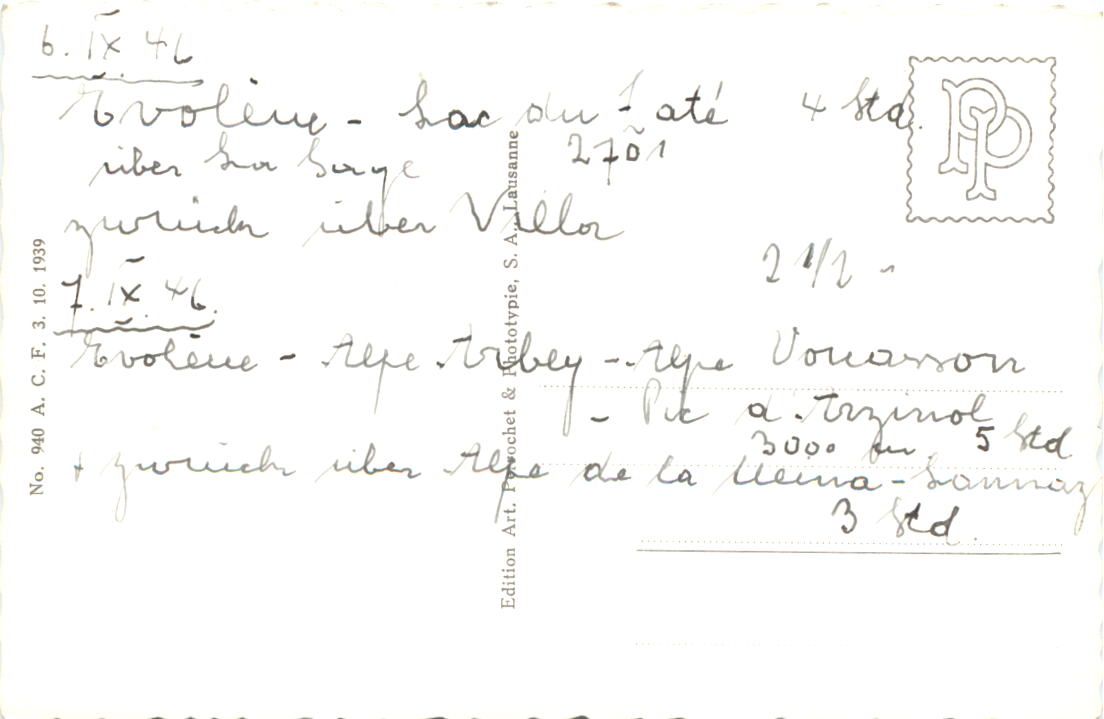 6. IX 46
Evolène - Lac du Zaté 4 Std.
2701
über La Sage
zurück über Villa
2 1/2 "
7. IX. 46.
Evolène - Alpe Arbey - Alpe Vouasson
- Pic d'Arzinol
3000 m. 5 Std
+ zurück über Alpe de la Meina - Lannaz
3 Std.
No. 940 A. C. F. 3. 10. 1939
Edition Art. Perrochet & Phototypie, S. A., Lausanne
PP